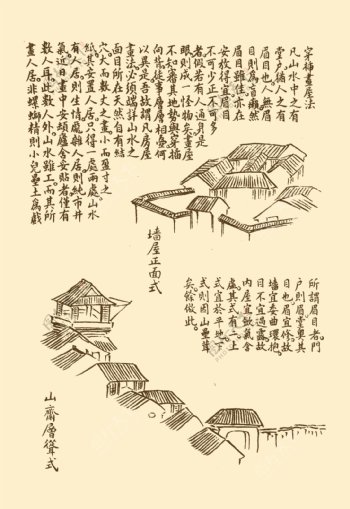 穿插畫屋法
凡山水中之有
堂戶猶人之有
眉目也人無眉
目則為盲癩然
眉目雖佳亦在
安放得宜眉目
不可少正不可多
者假若有人通身是
眼則成一怪物矣畫屋
不知審其地勢與穿插
向背徒事層層相疊何
以異是吾故謂凡房屋
畫法必須端詳山水之
面目所在天然自有結
穴大而數丈之畫小而盈寸之
紙其安置人居只得一處兩處山水
有人居則生情龐雜人居則純市井
氣近日畫中安頓廬舍妥貼者僅有
數人耳此數人外山水雖工而其所
畫人居非螺螄精則小兒壘土為戲
墻屋正面式
所謂眉目者門
戶則眉堂奧其
目也眉宜修故
墻宜委曲環抱
目不宜過露故
內屋宜歛氣含
虛其式有二上
式宜於平地下
式則因山疊聳
矣餘倣此
山齋層聳式